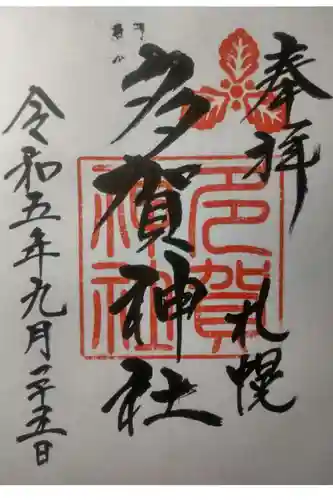 奉拝
札幌
多賀神社
多賀
神社
令和五年九月二十五日